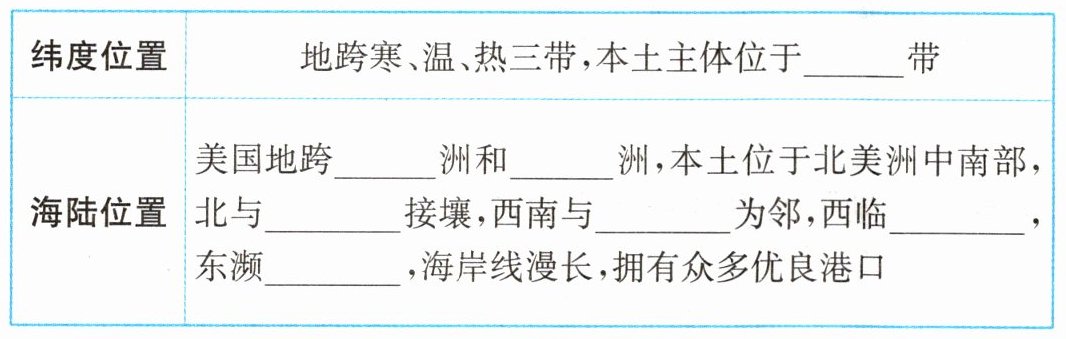 纬度位置
地跨寒、温、热三带,本土主体位于______带
海陆位置
美国地跨______洲和______洲,本土位于北美洲中南部,
北与________接壤,西南与________为邻,西临________,
东濒________,海岸线漫长,拥有众多优良港口